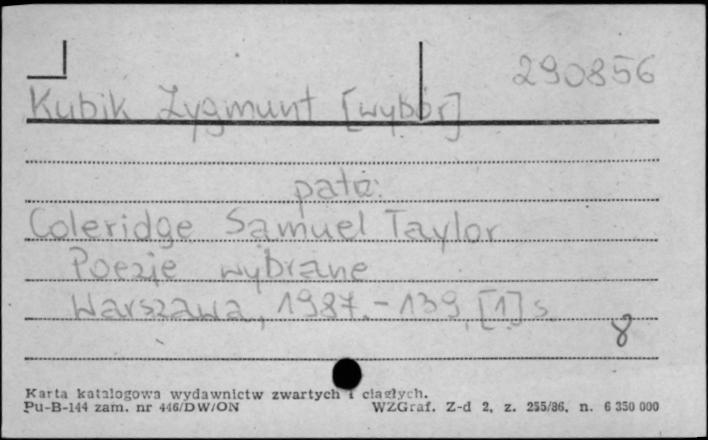 290856
Kubik Zygmunt [wybór]
patrz:
Coleridge Samuel Taylor
Poezje wybrane
Warszawa, 1987. - 139, [1] s.
8
Karta katalogowa wydawnictw zwartych i ciągłych.
Pu-B-144 zam. nr 446/DW/ON WZGraf. Z-d 2, z. 255/86, n. 6 350 000